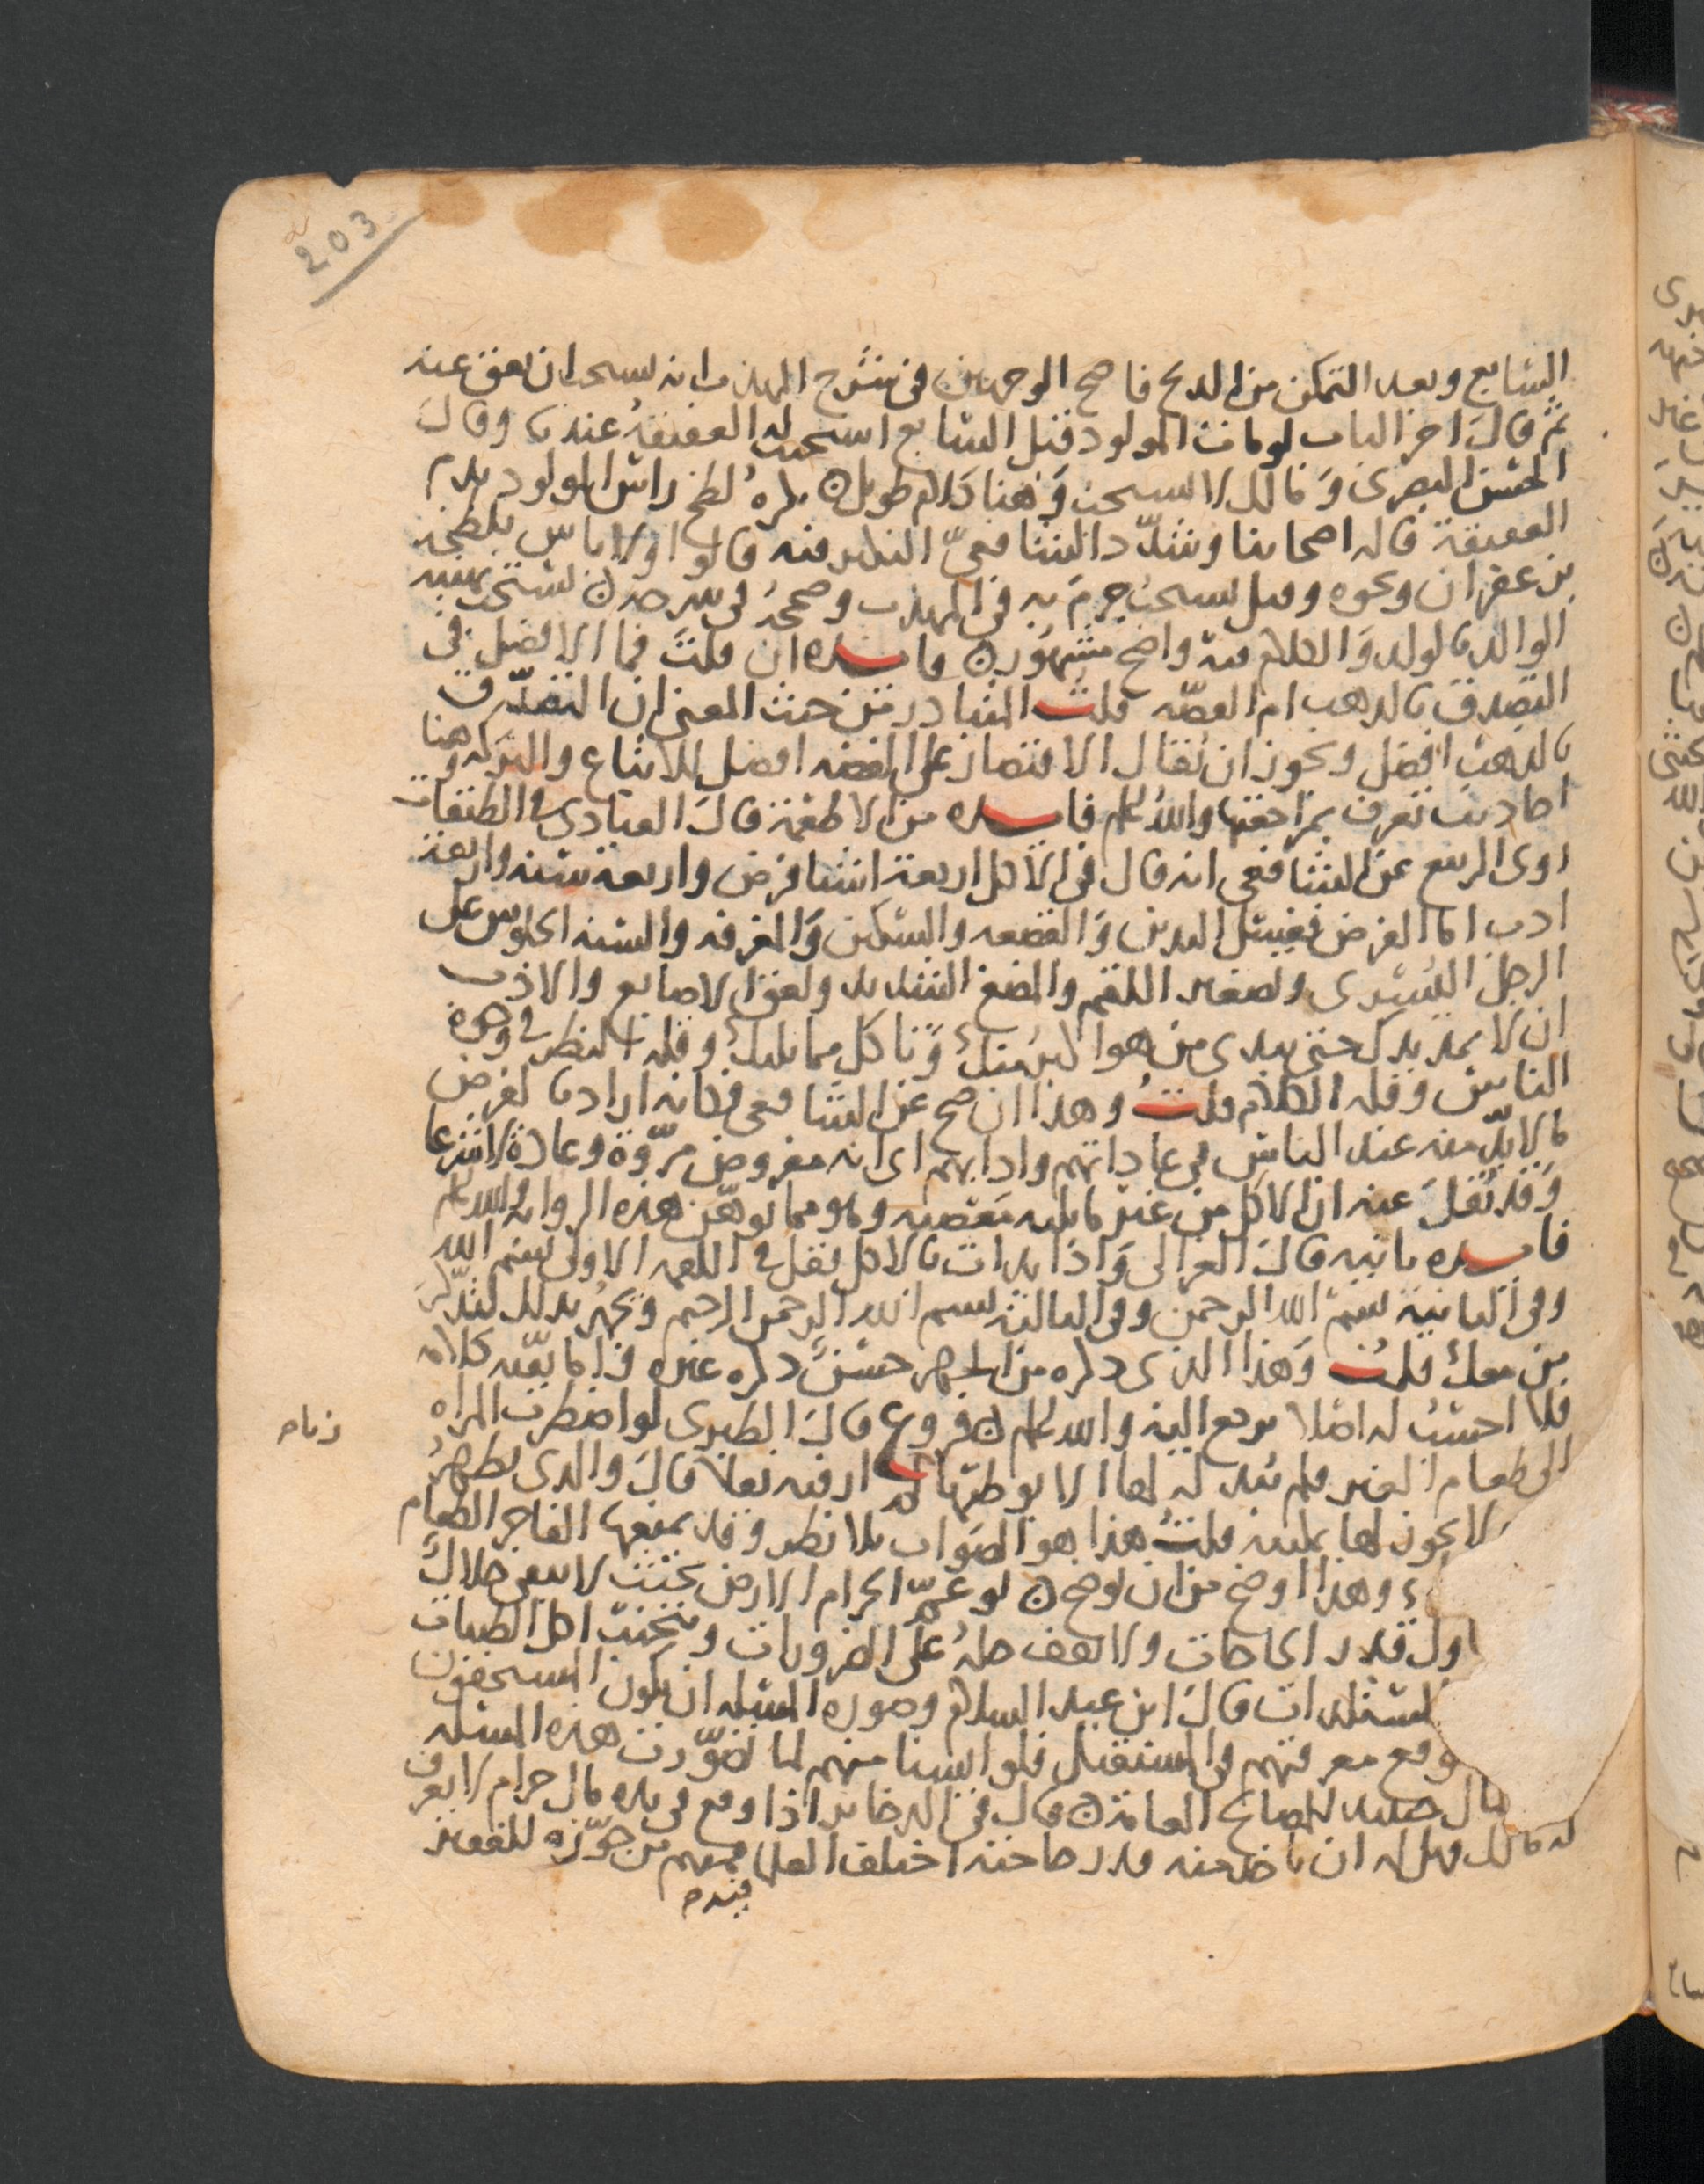 203
السابع وبعد التمكن من الذبح فاصح الوجهين في شرح المهذب انه يستحب ان يعق عنه
ثم قال اخر الباب لو مات المولود قبل السابع استحبت له العقيقة عندنا وقال
الحسن البصري ومالك لا تستحب وهنا كلام طويل ن يكره لطخ راس المولود بدم
العقيقة قاله اصحابنا وشدد الشافعي النكير فيه قالوا ولا باس بلطخه
بزعفران ونحوه وقيل يستحب جزم به في المهذب وصححه في شرحه ن يستحب تهنيه
الوالد بالولد والكلام فيه واضح مشهور ن فايده ان قلت فما الافضل في
التصدق بالذهب ام الفضه قلت المتبادر من حيث المعنى ان التصدق
بالذهب افضل ويجوز ان يقال الاقتصار على الفضه افضل للاتباع والبركه وهنا
احاديث تعرف بمراجعتها والله اعلم فايده من الاطعمة قال العبادي في الطبقات
روى الربيع عن الشافعي انه قال في الاكل اربعة اشيا فرض واربعه سنه واربعة
ادب اما الفرض فغسل اليدين والقصعه والسكين والمغرفه والسنه الجلوس على
الرجل اليسرى وتصغير اللقم والمضغ الشديد ولعق الاصابع والادب
ان لا يمد يدك حتى يبدى من هو اكبر منك وتاكل مما يليك وقله النظر في وجوه
الناس وقله الكلام قلت وهذا ان صح عن الشافعي فكانه اراد بالفرض
ما لا بد منه عند الناس في عاداتهم وادابهم اي انه مفروض مروة وعادة لا شرعا
وقد نقل عنه ان الاكل من غير ما يليه معصيه وهو مما يوهن هذه الروايه والله اعلم
فايده ثانيه قال الغزالي واذا بدات بالاكل فقل في اللقمه الاولى بسم الله
وفي الثانية بسم الله الرحمن وفي الثالثة بسم الله الرحمن الرحيم ويجهر بذلك ليذكر
من معك قلت وهذا الذي ذكره من الجهر حسن ذكره غيره واما بقيه كلامه
فلا احسب له اصلا يرجع اليه والله اعلم ن فروع قال الطبري لو اضطرت المراه
الى طعام الغير فلم يبذله لها الا بوطئها لم ار فيه نقلا قال والذي يظهر
لا يجوز لها تمكينه قلت هذا هو الصواب بلا نظر وقد يمنعها الفاجر الطعام
وهذا اوضح من ان يوضح ن لو عم الحرام الارض بحيث لا يبقى حلال
قدر الحاجات ولا يقف حله على الضرورات ويتجنب اكل الطيبات
قال ابن عبد السلام وصوره المسله ان يكون المستحقون
معرفتهم في المستقبل فلو ايسنا منهم لما تصورت هذه المسله
للمصالح العامة ن قال في الذخاير اذا وقع في يده مال حرام لا يعرف
له مالك فهل له ان ياخذ منه قدر حاجته اختلف العلما فمنهم من جوزه للفقير